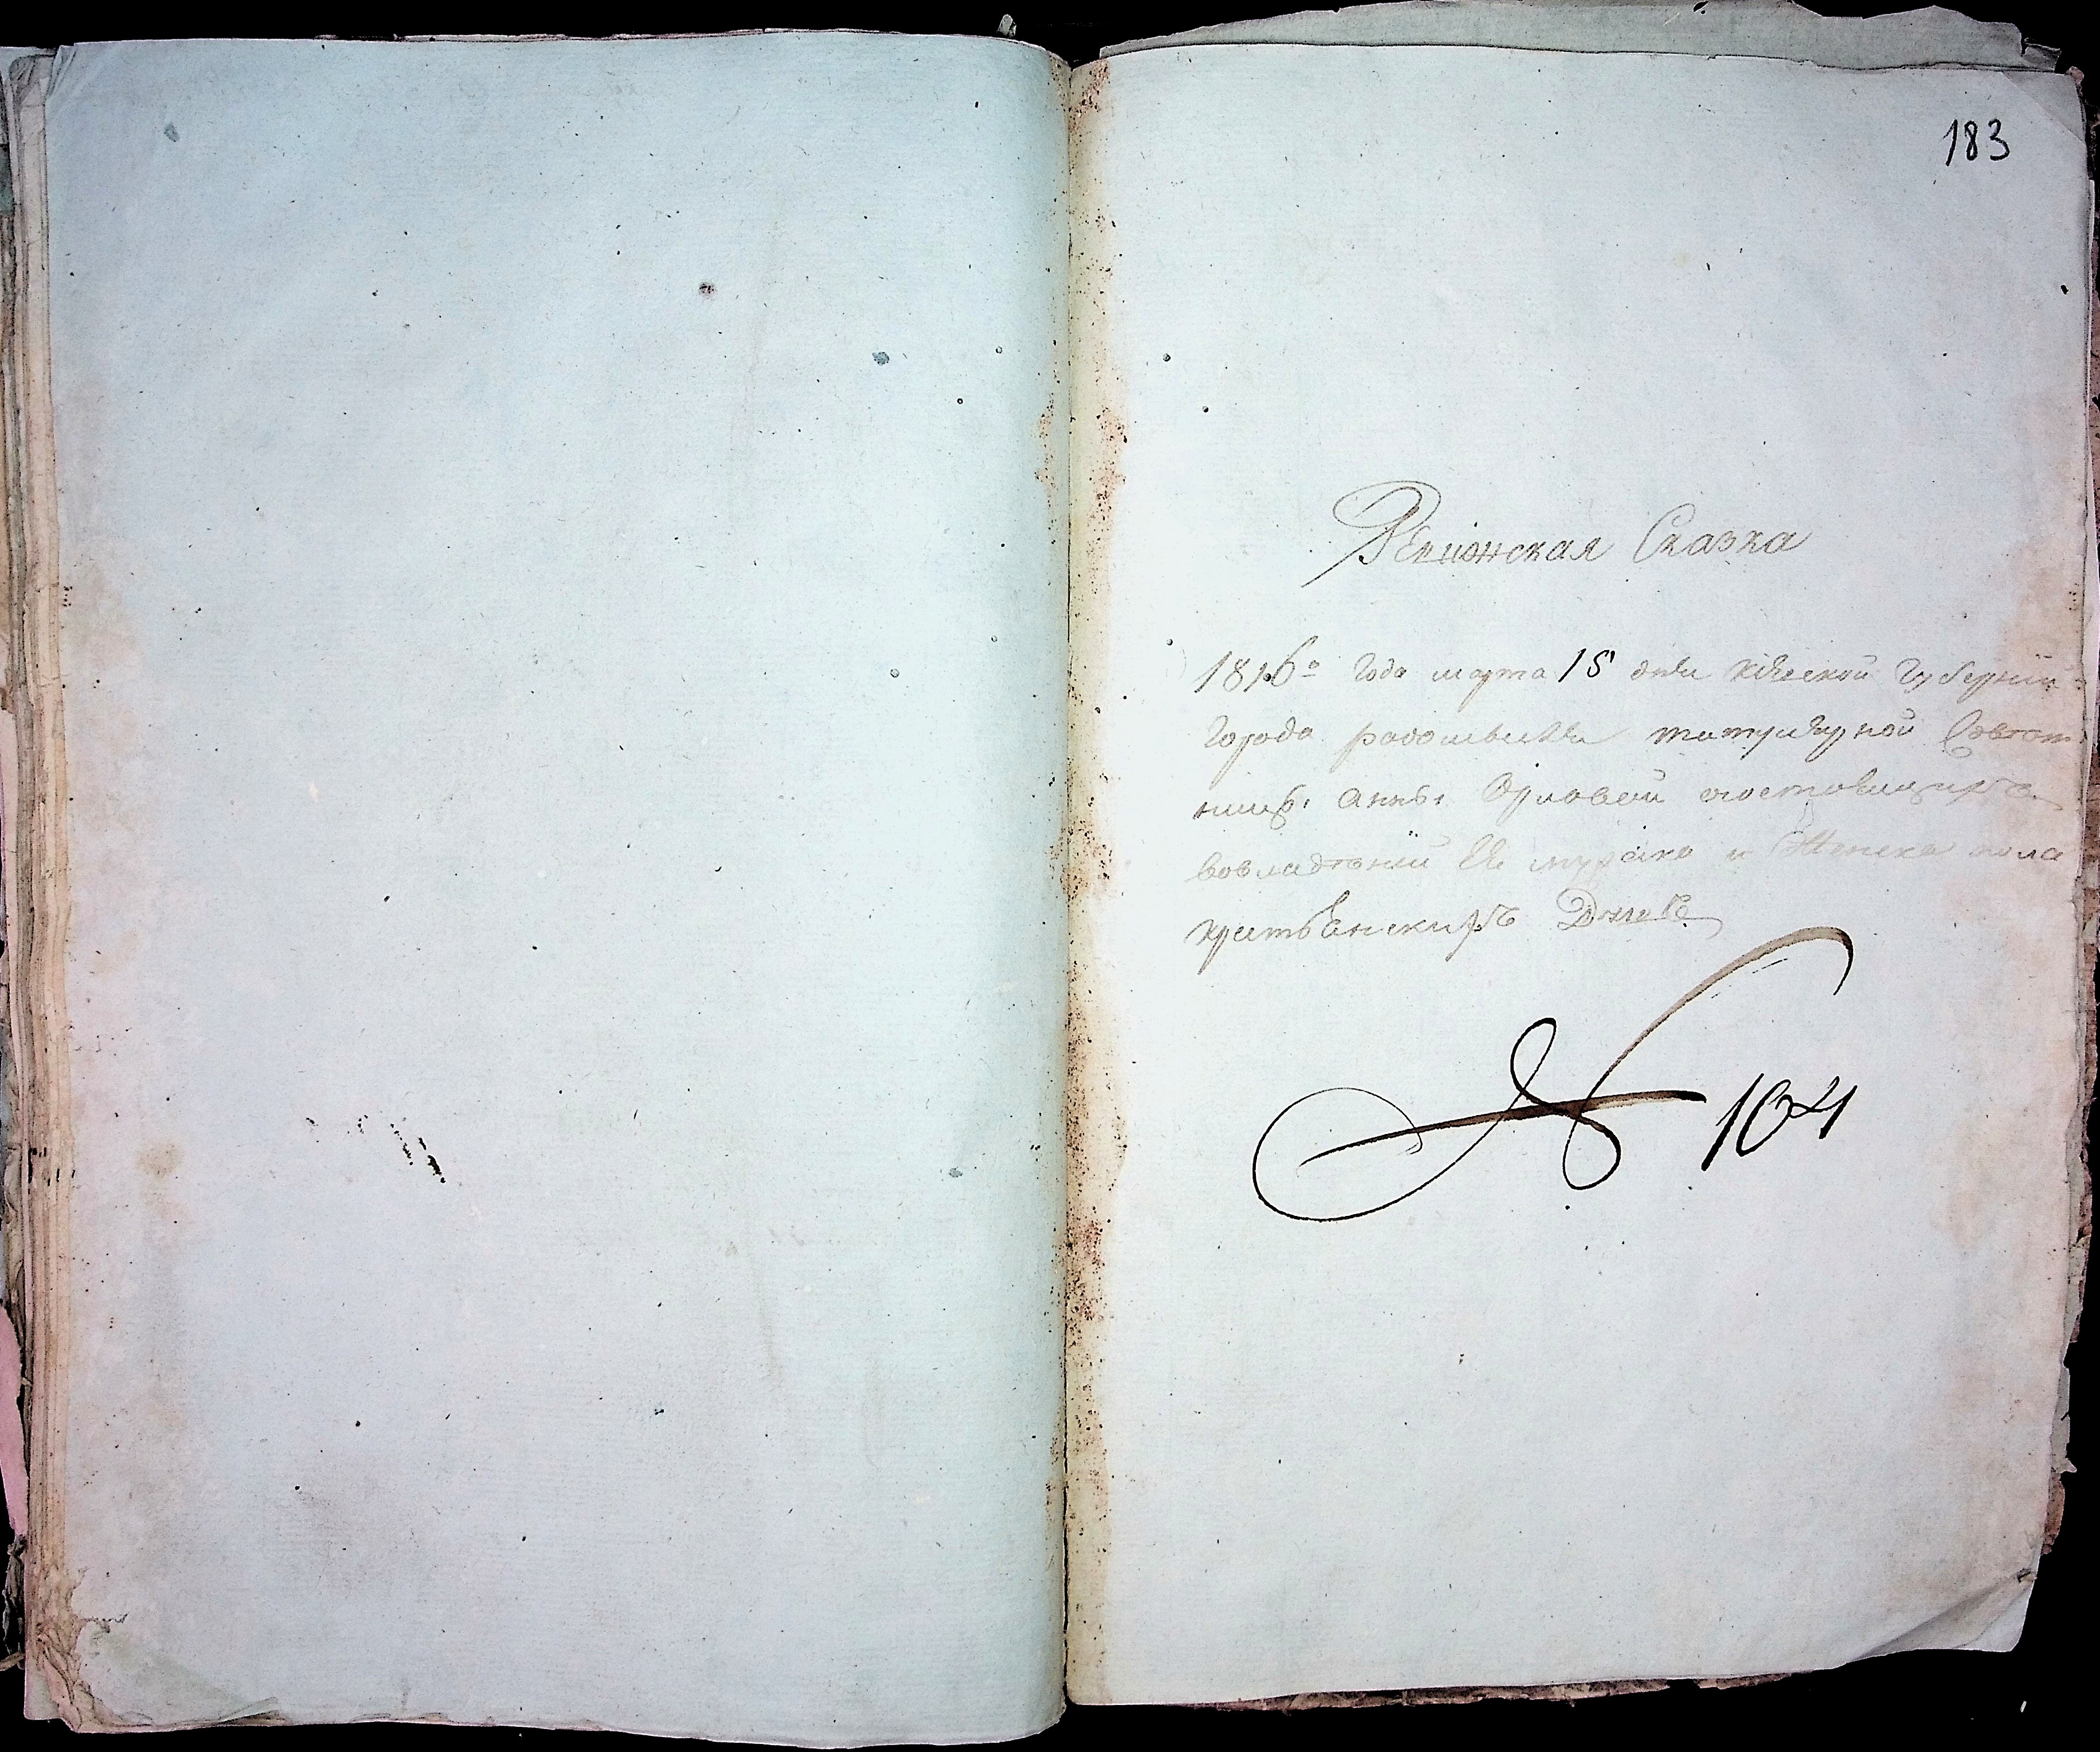 183
Ревижская Сказка
1816го года марта 15 дня Кіевской Губерніи
города радомысля титулярной Совѣт
ницы Анны Орловой о состоящихъ
вовладѣніи Ея мужска и Женска пола
крестьЕнскихъ Душъ
№ 104